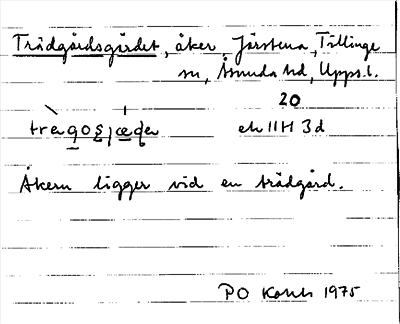 Trädgårdsgärdet, åker, Järstena, Tillinge
sn, Åsunda hd, Upps. l.
20
ek 11H 3d
Åkern ligger vid en trädgård.
PO 1975